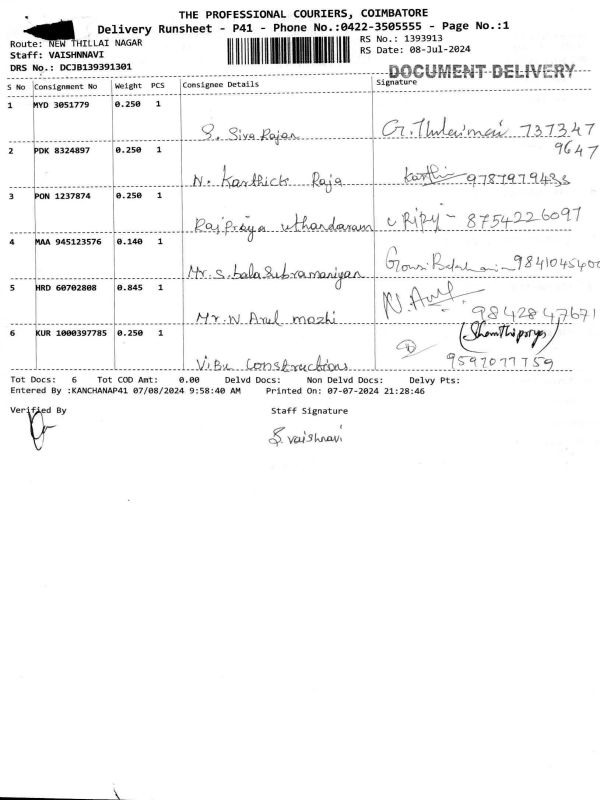 THE PROFESSIONAL COURIERS, COIMBATORE
Delivery Runsheet - P41 - Phone No.:0422-3505555 - Page No.:1
Route: NEW THILLAI NAGAR
RS No.: 1393913
Staff: VAISHNNAVI
RS Date: 08-Jul-2024
DRS No.: DCJB139391301
DOCUMENT DELIVERY
S No Consignment No Weight PCS Consignee Details Signature
1 MYD 3051779 0.250 1
S. Siva Rajan G. Thulasimani 737347
9647
2 PDK 8324897 0.250 1
N. Karthick Raja Karthi 9787979433
3 PON 1237874 0.250 1
Rajpraya uthandaram 8754226097
4 MAA 945123576 0.140 1
Mr. S. balaSubramaniyan 9841045400
5 HRD 60702808 0.845 1
Mr. N Arul mozhi N. Arul 9842847671
6 KUR 1000397785 0.250 1
(Shanthipriya)
ViBu Constructions 9597077759
Tot Docs: 6 Tot COD Amt: 0.00 Delvd Docs: Non Delvd Docs: Delvy Pts:
Entered By :KANCHANAP41 07/08/2024 9:58:40 AM Printed On: 07-07-2024 21:28:46
Verified By Staff Signature
S. vaishnavi